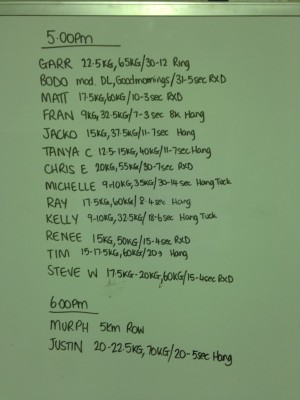 5:00pm
GARR 22.5KG, 65KG/30-12 Ring
BODO mod. DL, Goodmornings/31-5sec RXD
MATT 17.5KG, 60KG/10-3sec RXD
FRAN 9KG, 32.5KG/7-3sec Bk Hang
JACKO 15KG, 37.5KG/11-7sec Hang
TANYA C 12.5-15KG, 40KG/11-7sec Hang
CHRIS E 20KG, 55KG/30-7sec RXD
MICHELLE 9-10KG, 35KG/30-14sec Hang Tuck
RAY 17.5KG, 60KG/8-4sec Hang
KELLY 9-10KG, 32.5KG/18-6sec Hang Tuck
RENEE 15KG, 50KG/15-4sec RXD
TIM 15-17.5KG, 60KG/20s Hang
STEVE W 17.5KG-20KG, 60KG/15-4sec RXD
6:00pm
MURPH 5km Row
JUSTIN 20-22.5KG, 70KG/20-5sec Hang